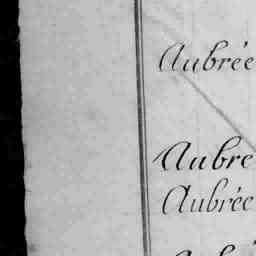 Aubrée
Aubre
Aubrée